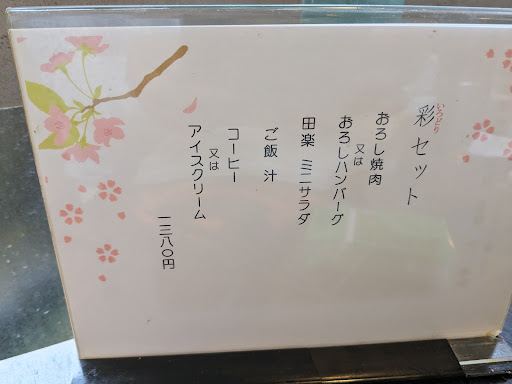 いろどり
彩セット
おろし焼肉
又は
おろしハンバーグ
田楽 ミニサラダ
ご飯 汁
コーヒー
又は
アイスクリーム
一三八〇円